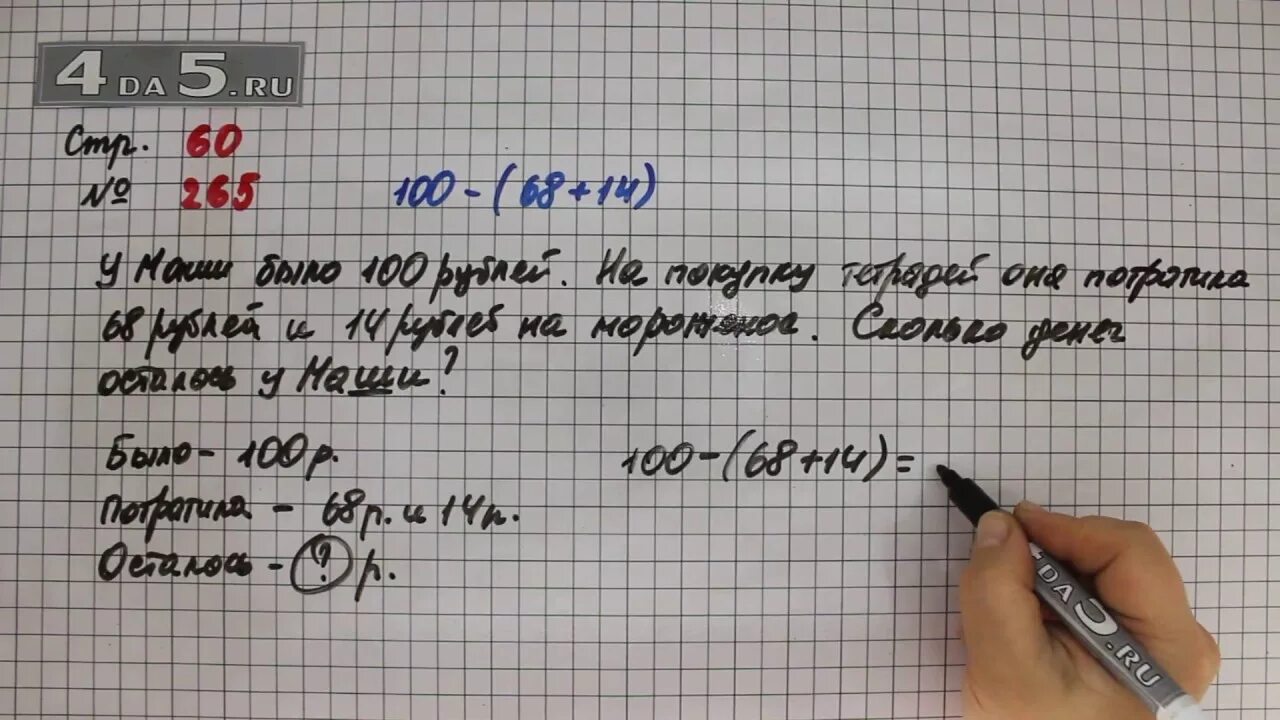 4DA5.RU
Стр. 60
№ 265 100-(68+14)
У Маши было 100 рублей. На покупку тетрадей она потратила
68 рублей и 14 рублей на мороженое. Сколько денег
осталось у Маши?
Было- 100р.
Потратила - 68р. и 14р.
Осталось - ? р.
100-(68+14)=
4DA5.RU